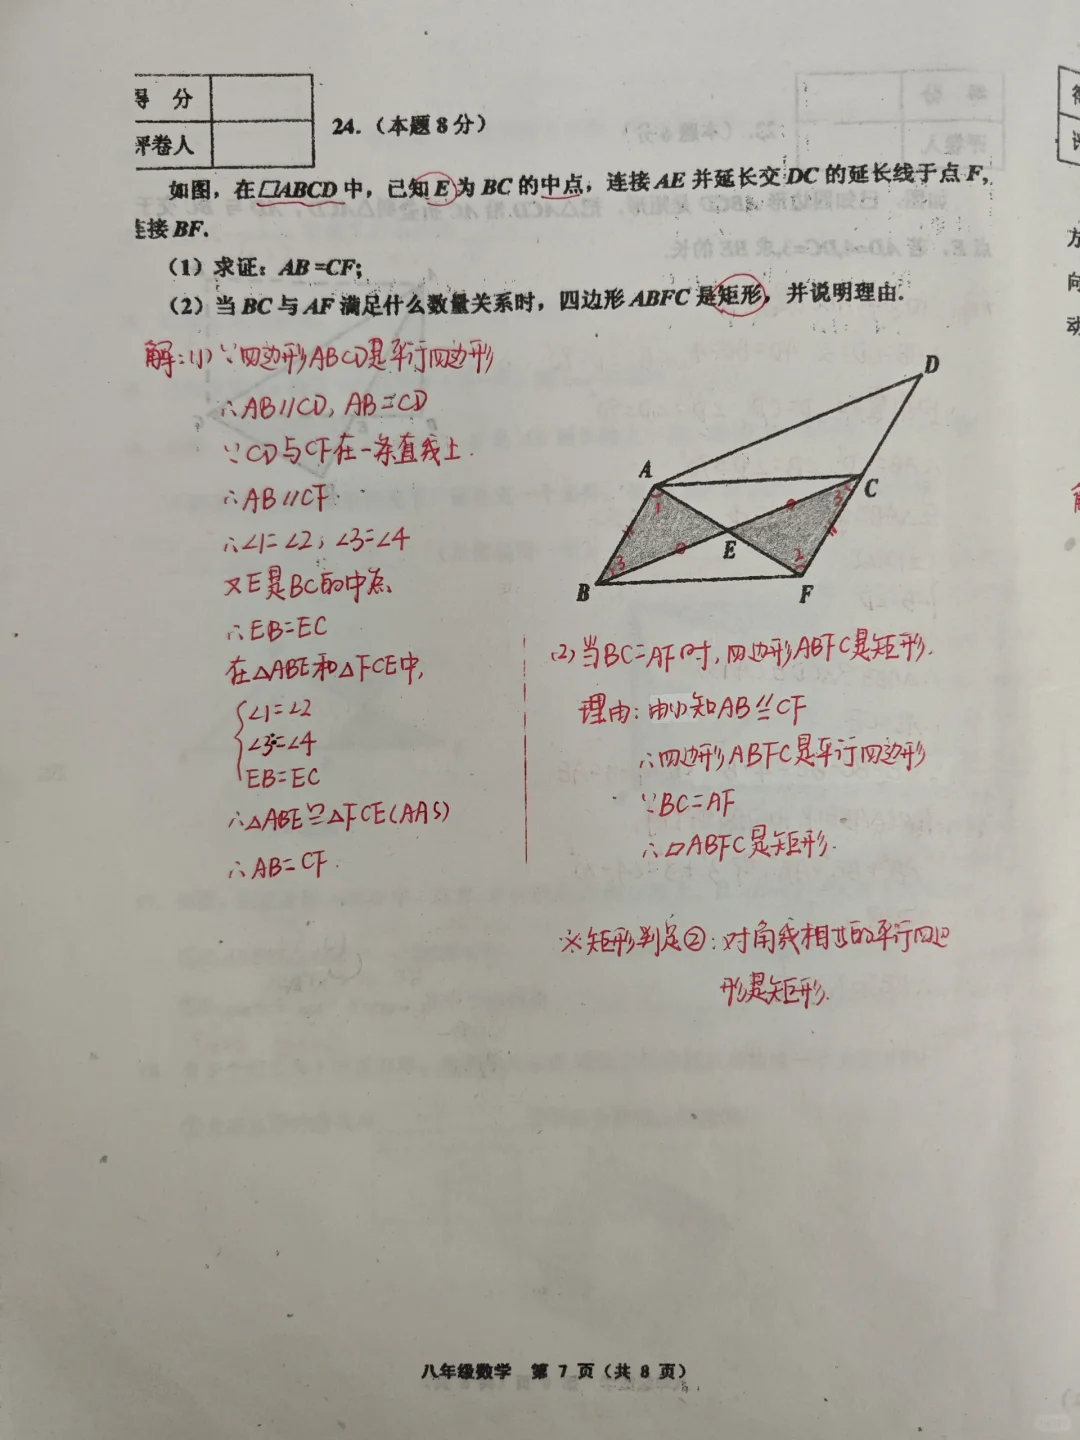 得 分
评卷人
24.（本题8分）
如图，在□ABCD中，已知E为BC的中点，连接AE并延长交DC的延长线于点F，
连接BF.
（1）求证：AB=CF;
（2）当BC与AF满足什么数量关系时，四边形ABFC是矩形，并说明理由.
解:(1)∵四边形ABCD是平行四边形
∴AB∥CD, AB=CD
∵CD与CF在一条直线上.
∴AB∥CF.
∴∠1=∠2, ∠3=∠4
又E是BC的中点
∴EB=EC
在△ABE和△FCE中,
∠1=∠2
∠3=∠4
EB=EC
∴△ABE≌△FCE(AAS)
∴AB=CF.
D
A
C
1
3
E
3
2
B
F
(2)当BC=AF时,四边形ABFC是矩形.
理由:由(1)知AB∥=CF
∴四边形ABFC是平行四边形
∵BC=AF
∴□ABFC是矩形.
※矩形判定②:对角线相等的平行四边
形是矩形.
八年级数学 第 7 页（共 8 页）